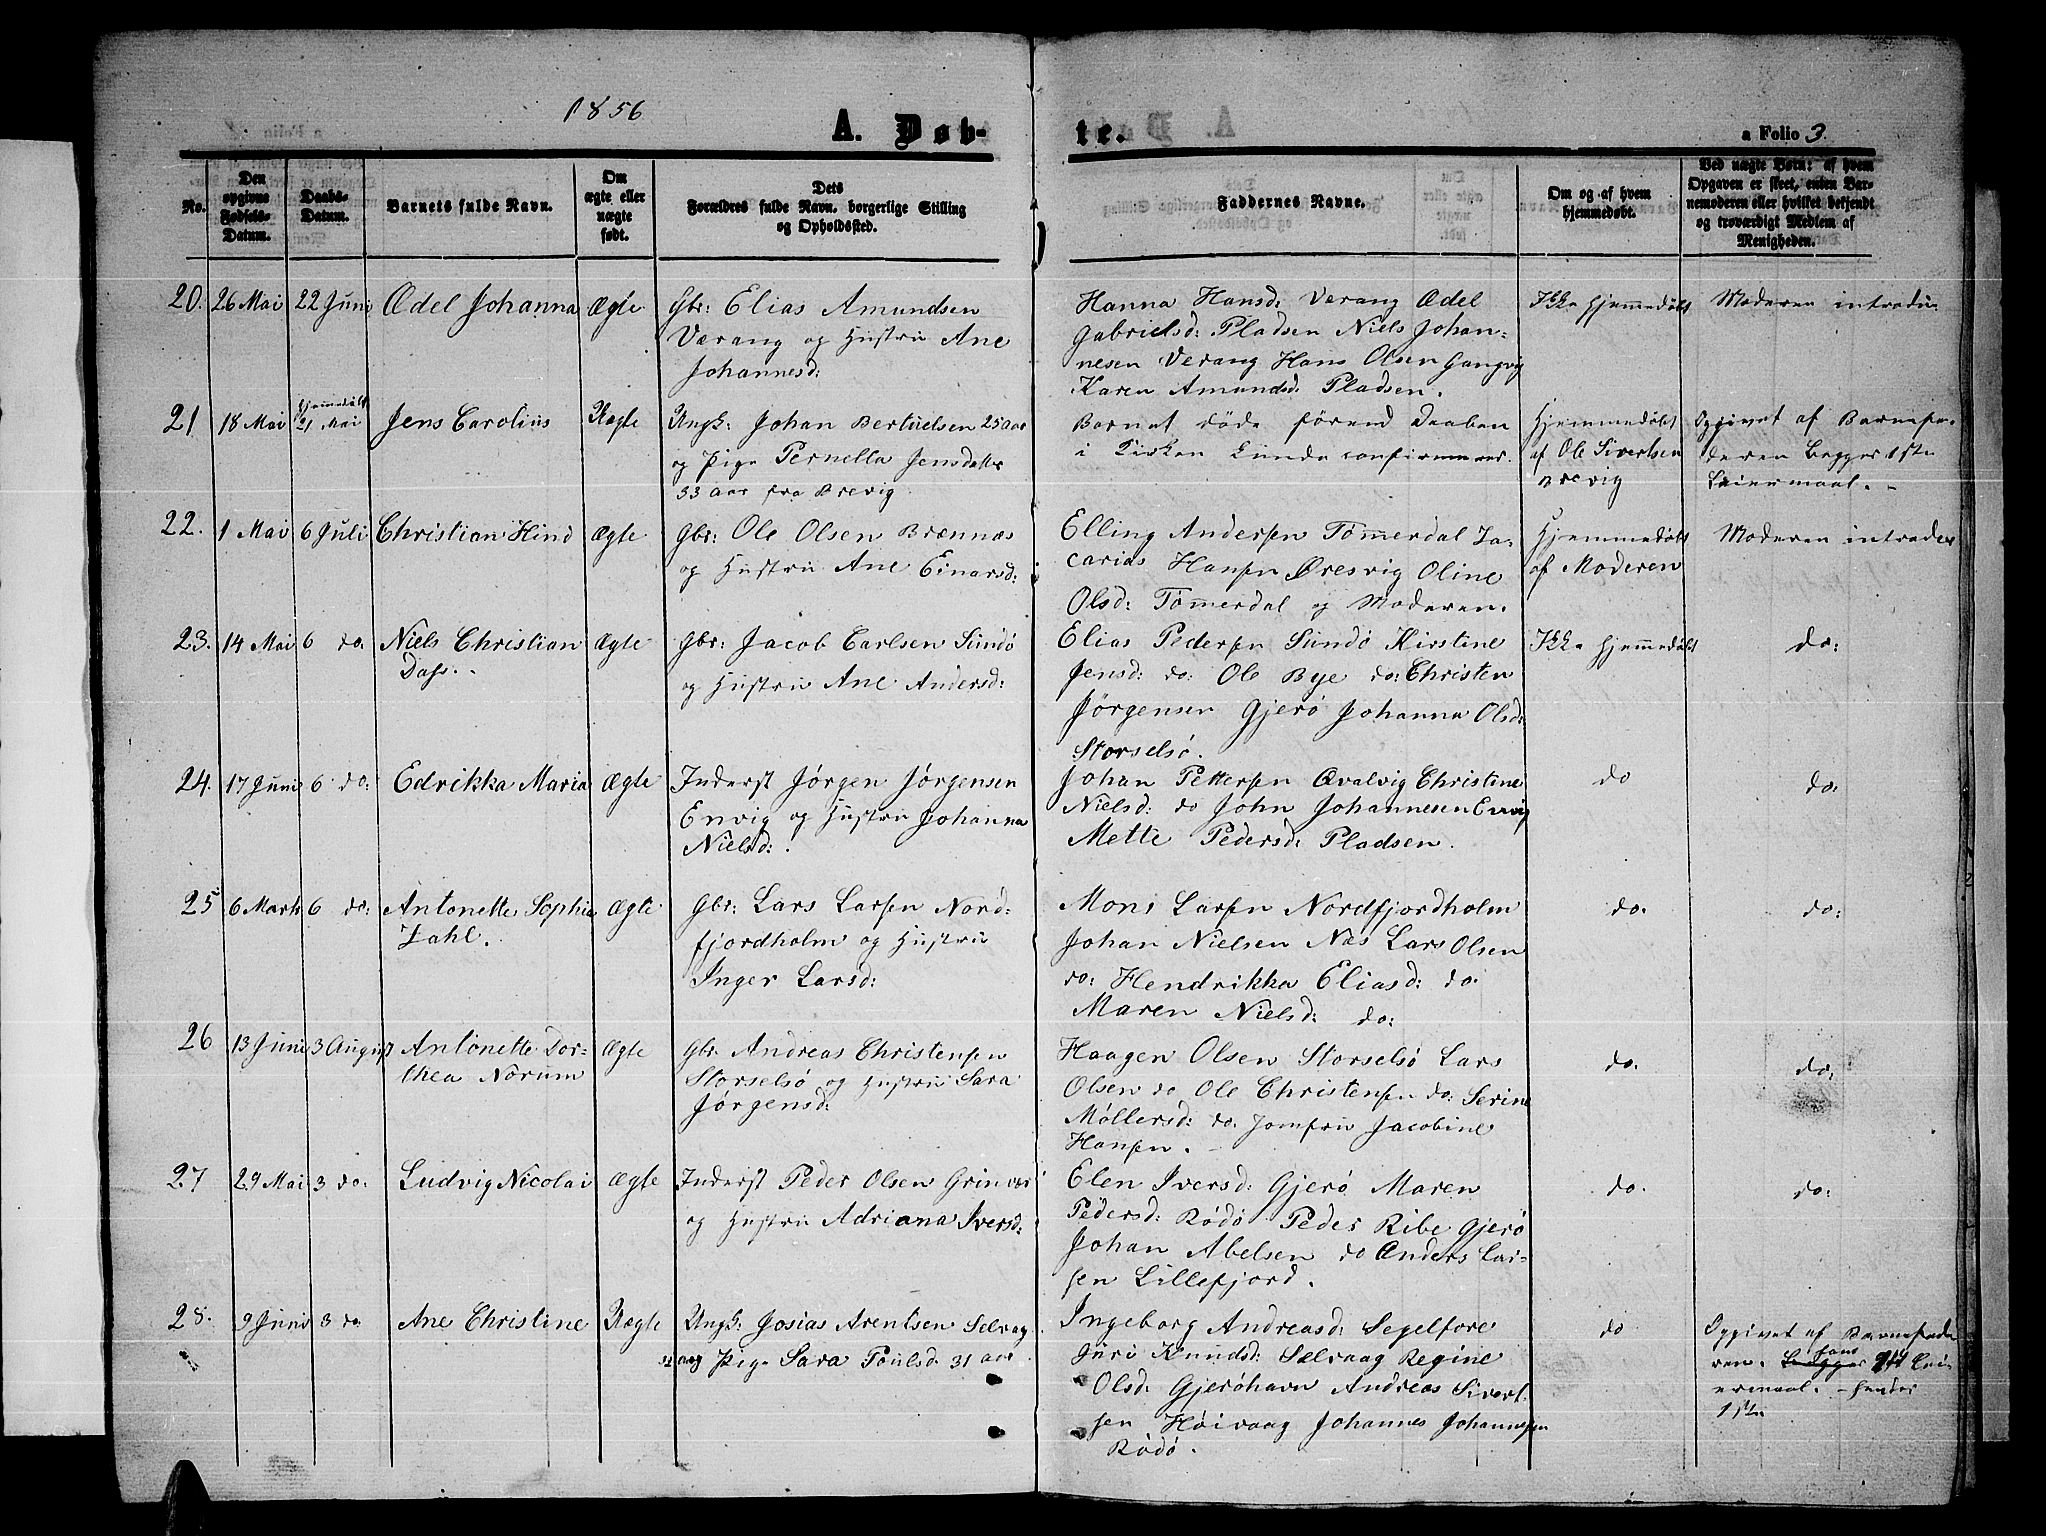 1856
A. Døb-
te.
a Folio 3.
No.
Den opgivne Fødsels-Datum.
Daabs-Datum.
Barnets fulde Navn.
Om ægte eller uægte født.
Dets
Forældres fulde Navn, borgerlige Stilling
og Opholdssted.
Faddernes Navne.
Om og af hvem
hjemmedøbt.
Ved uægte Børn: af hvem
Opgaven er skeet, enten Bar-
nemoderen eller hvilket bekjendt
og troværdigt Medlem af
Menigheden.
20. 26 Mai 22 Juni Ædel Johanna Ægte Gbr: Elias Amundsen
Værang og Hustru Ane
Johannesd:
Hanna Hansd: Verang Ædel
Gabrielsd: Pladsen Niels Johan-
nesen Verang Hans Olsen Gangvig
Karen Amundsd: Pladsen.
Ikke hjemmedøbt
Moderen introdu-
21 18 Mai hjemmedøbt 21 Mai Jens Carolius Uægte Ungk: Johan Bertuelsen 25 aar
og Pige Pernella Jensdatter
33 aar fra Brevig
Barnet døde førend Daaben
i Kirken kunde confirmeres.
Hjemmedøbt
af Ole Sivertsen
Brevig
Opgivet af Barnefa-
deren Begges 1ste
Leiermaal. -
22. 1 Mai 6 Juli Christian Hind Ægte Gbr: Ole Olsen Brennæs
og Hustru Ane Einarsd:
Elling Andersen Tømmerdal Za-
carias Hansen Øresvig Oline
Olsd: Tømmerdal og Moderen.
Hjemmedøbt
af Moderen
Moderen introdus
23. 14 Mai 6 do: Niels Christian
Dass. Ægte Gbr: Jacob Carlsen Sundø
og Hustru Ane Andersd:
Elias Pedersen Sundø Kirstine
Jensd: do: Ole Bye do: Christen
Jørgensen Gjerø Johanna Olsd:
Storselsø.
Ikke hjemmedøbt
do:
24. 17 Juni 6 do: Edrikka Maria Ægte Inderst Jørgen Jørgensen
Envig og Hustru Johanna
Nielsd:
Johan Pettersen Qvalvig Christine
Nielsd: do John Johannesen Envig
Mette Pedersd: Pladsen.
do
do:
25 6 Marts 6 do: Antonette Sophia
Zahl. Ægte Gbr: Lars Larsen Nord-
fjordholm og Hustru
Inger Larsd:
Mons Larsen Nordfjordholm
Johan Nielsen Næs Lars Olsen
do: Hendrikka Eliasd: do.
Maren Nielsd: do:
do.
do:
26 13 Juni 3 August Antonette Dor-
thea Norum Ægte Gbr. Andreas Christensen
Storselsø og Hustru Sara
Jørgensd:
Haagen Olsen Storselsø Lars
Olsen do Ole Christensen do: Serine
Møllersd: do. Jomfru Jacobine
Hansen. -
do.
do:
27 29 Mai 3 do: Ludvig Nicolai Ægte Inderst Peder Olsen
og Hustru Adriana Iversd:
Elen Iversd: Gjerø Maren
Pedersd: Rødø Peder Ribe Gjerø
Johan Abelsen do Anders Lar-
sen Lillefjord.
do.
do:
28. 9 Juni 3 do Ane Christine Uægte Ungk: Josias Arentsen Selvaag
32 aar Pige Sara Poulsd. 31 aar
Ingeborg Andreasd: Segelfore
Guri Knudsd: Selvaag Regine
Olsd: Gjerøhavn Andreas Sivert-
sen Høivaag Johannes Johannesen
Rødø.
do
Opgivet af Barnefade-
ren. Begges hans 2det Lei-
ermaal. - hendes
1ste